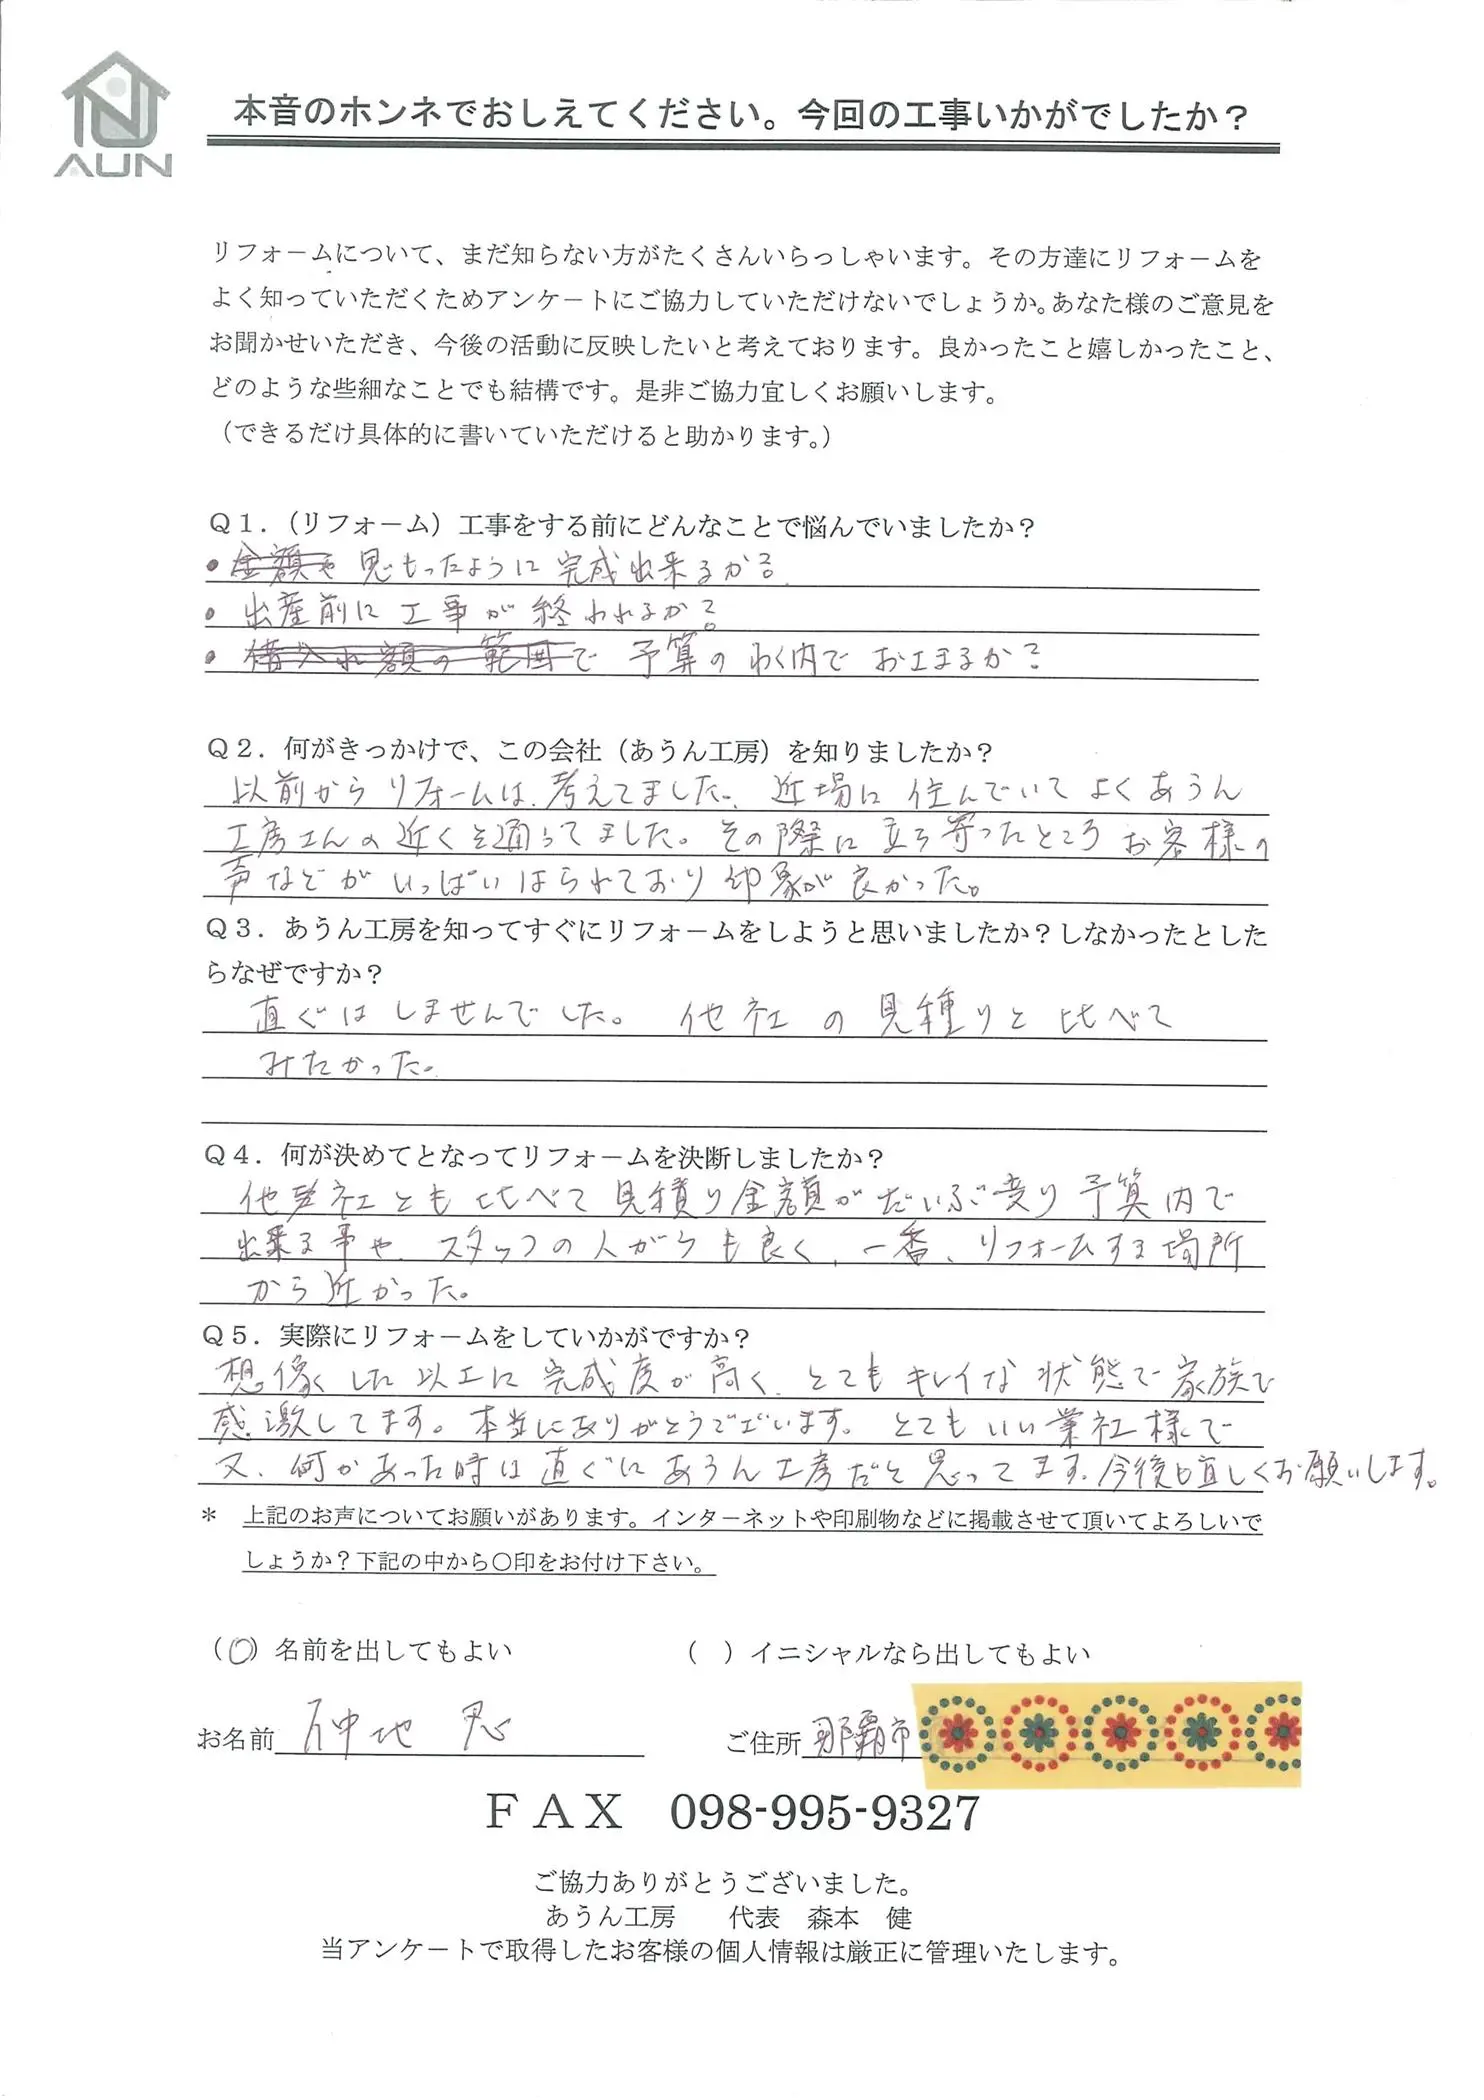 AUN
本音のホンネでおしえてください。今回の工事いかがでしたか？
リフォームについて、まだ知らない方がたくさんいらっしゃいます。その方達にリフォームを
よく知っていただくためアンケートにご協力していただけないでしょうか。あなた様のご意見を
お聞かせいただき、今後の活動に反映したいと考えております。良かったこと嬉しかったこと、
どのような些細なことでも結構です。是非ご協力宜しくお願いします。
（できるだけ具体的に書いていただけると助かります。）
Q１．（リフォーム）工事をする前にどんなことで悩んでいましたか？
・金額や 思もったように完成出来るか？
・出産前に工事が終われるか？
・借入れ額の範囲で 予算のわく内でおさまるか？
Q２．何がきっかけで、この会社（あうん工房）を知りましたか？
以前からリフォームは、考えてました。近場に住んでいてよくあうん
工房さんの近くを通ってました。その際に立ち寄ったところお客様の
声などがいっぱいはられており印象が良かった。
Q３．あうん工房を知ってすぐにリフォームをしようと思いましたか？しなかったとした
らなぜですか？
直ぐはしませんでした。他社の見積りと比べて
みたかった。
Q４．何が決めてとなってリフォームを決断しましたか？
他社とも比べて見積り金額がだいぶ変り予算内で
出来る事や、スタッフの人がらも良く、一番、リフォームする場所
から近かった。
Q５．実際にリフォームをしていかがですか？
想像した以上に完成度が高く、とてもキレイな状態で家族で
感激してます。本当にありがとうございます。とてもいい業社様で
又、何かあった時は直ぐにあうん工房だと思ってます。今後も宜しくお願いします。
＊ 上記のお声についてお願いがあります。インターネットや印刷物などに掲載させて頂いてよろしいで
しょうか？下記の中から〇印をお付け下さい。
（〇）名前を出してもよい （ ）イニシャルなら出してもよい
お名前 仲地 忍 ご住所 那覇市
ＦＡＸ 098-995-9327
ご協力ありがとうございました。
あうん工房 代表 森本 健
当アンケートで取得したお客様の個人情報は厳正に管理いたします。